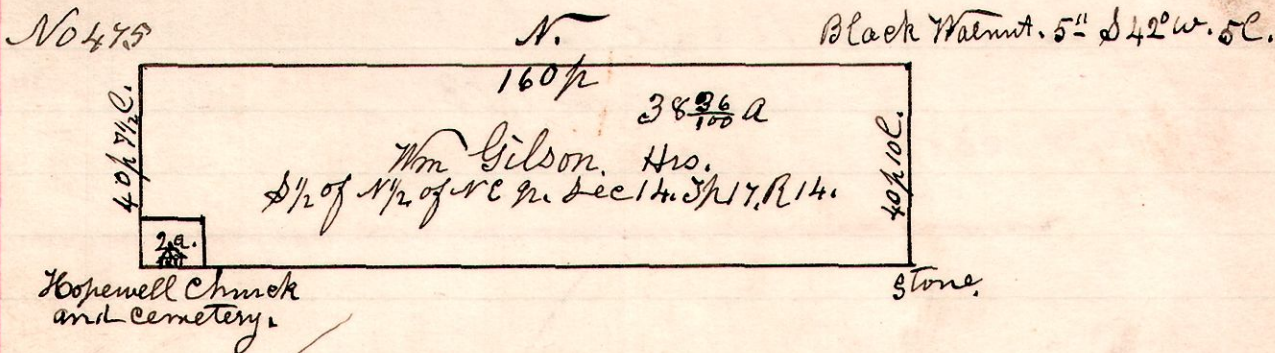 No 475
N.
Black Walnut. 5" S 42° W. 5 l.
160 p
38 36/100 a
40 p 7 1/2 l.
Wm Gilson. Hrs.
S 1/2 of N 1/2 of N E qr. Sec 14. Tp 17, R 14.
40 p 10 l.
2 a.
Hopewell Church
and cemetery.
Stone.